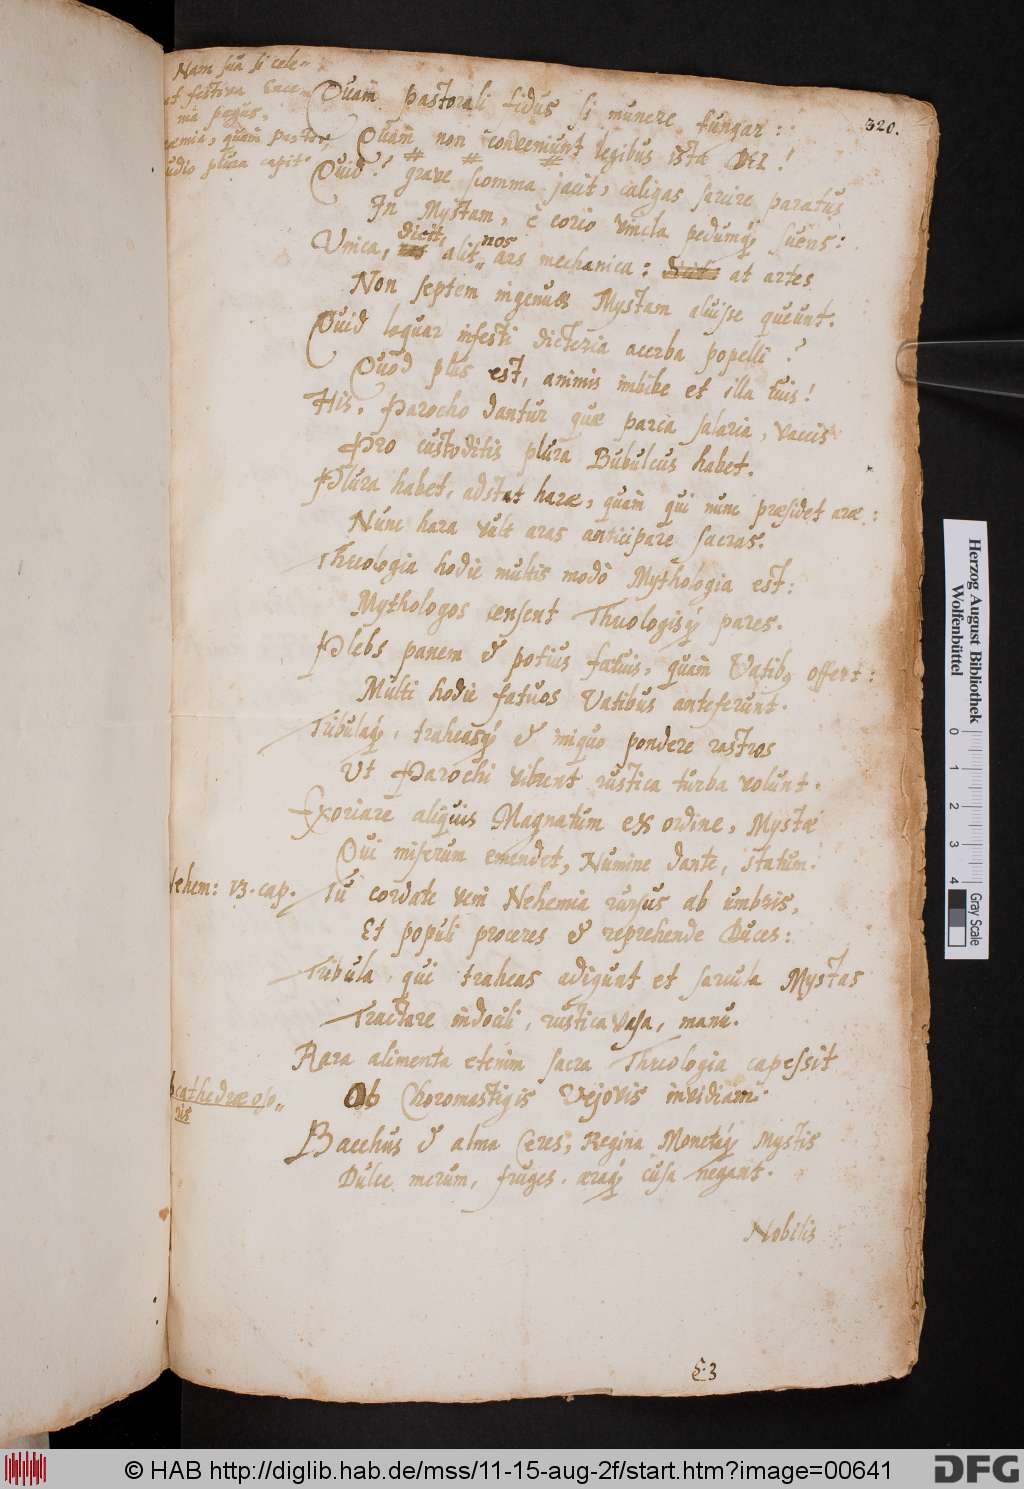 Nam sua si cele-
at festiva Ence-
nia pagus,
aemia, quàm pastor,
udio plura capit.
320.
Quàm pastorali fidus si munere fungar:
Quàm non conveniunt legibus ista DEI!
Quid? grave scomma jacit, caligas sarcire paratus
In Mystam, è corio vincla pedumq; suens:
Unica, dicit, alit nos ars mechanica: at artes
Non septem ingenuæ Mystam aluisse queunt.
Quid loquar infesti dicteria acerba popelli?
Quòd plus est, animis imbibe et illa tuis!
His, Parocho dantur quæ parca salaria, vaccis
Pro custoditis plura Bubulcus habet.
Plura habet, adstat haræ, quàm qui nunc præsidet aræ:
Nunc hara vult aras anticipare sacras.
Theologia hodie multis modò Mythologia est:
Mythologos censent Theologisq; pares.
Plebs panem & potius fatuis, quàm Vatibq offert:
Multi hodie fatuos Vatibus anteferunt.
Tribulaq;, traheasq; & iniquo pondere rastros
Ut Parochi vibrent rustica turba volunt.
Exoriare aliquis Magnatum ex ordine, Mystæ
Qui miserum emendet, Numine dante, statum!
Nehem: 13. cap.
Tu cordate veni Nehemia rursus ab umbris,
Et populi proceres & reprehende Duces:
Tribula, qui traheas adigunt et sarcula Mystas
Tractare indocili, rustica vasa, manu.
Rara alimenta etenim sacra Theologia capessit
cathedræ oso-
ris
Ob Choromastigis Vejovis invidiam.
Bacchus & alma Ceres, Regina Monetaq; Mystis
Dulce merum, fruges, æraq; cusa negant.
Nobilis
3
Herzog August Bibliothek
Wolfenbüttel
0 1 2 3 4
Gray Scale
© HAB http://diglib.hab.de/mss/11-15-aug-2f/start.htm?image=00641
DFG